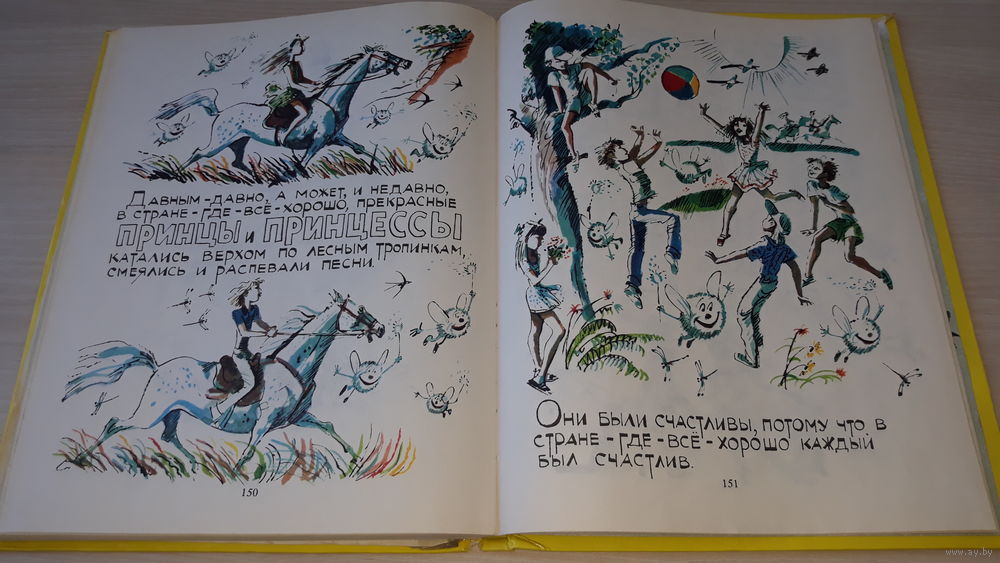 Давным-давно, а может, и недавно,
в стране-где-всё-хорошо, прекрасные
ПРИНЦЫ и ПРИНЦЕССЫ
катались верхом по лесным тропинкам,
смеялись и распевали песни.
150
Они были счастливы, потому что в
стране-где-всё-хорошо каждый
был счастлив.
151
www.ay.by